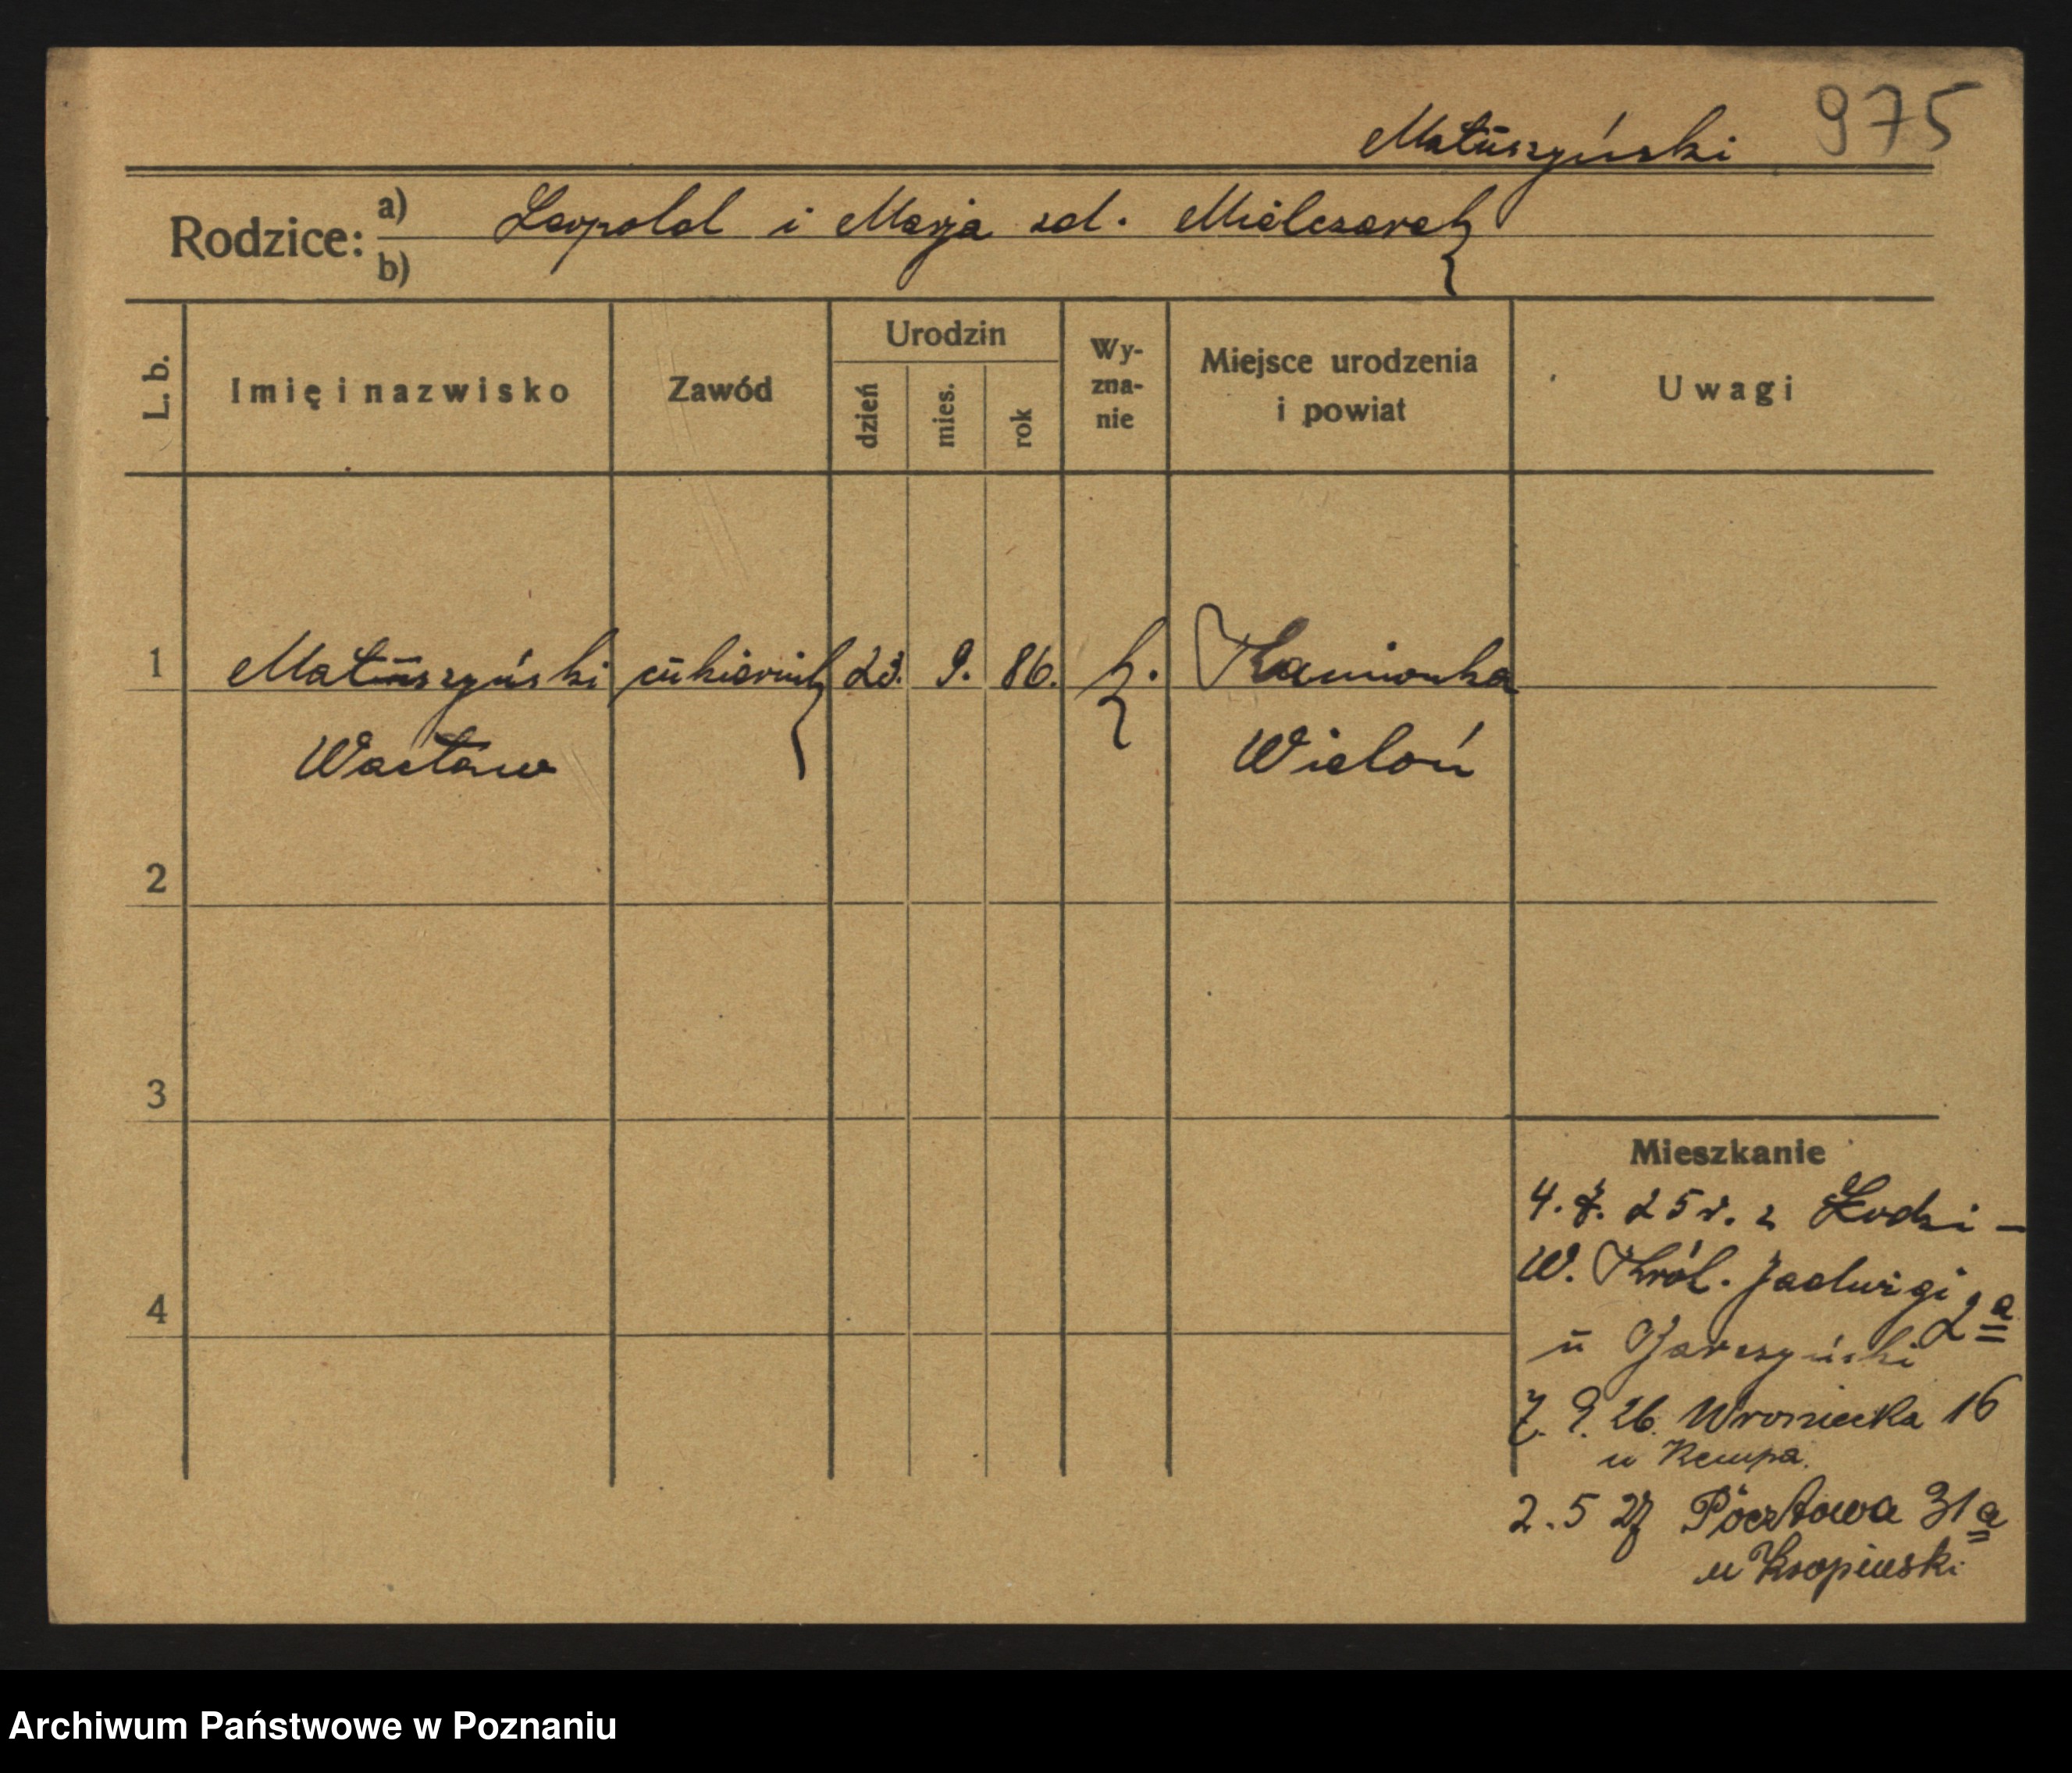 Matuszyński 975
Rodzice: a) Leopold i Marja zd. Mielczarek
b)
L. b. Imię i nazwisko Zawód Urodzin dzień mies. rok Wy-zna-nie Miejsce urodzenia i powiat Uwagi
1 Matuszyński cukiernik 23. 9. 86. k. Kamionka
Wacław Wieluń
2
3
Mieszkanie
4. 7. 25 r. z Łodzi –
W. Król. Jadwigi 2a
4
u Garczyński
7. 9. 26. Wroniecka 16
u Kempa.
2. 5 27 Pocztowa 31a
u
Archiwum Państwowe w Poznaniu